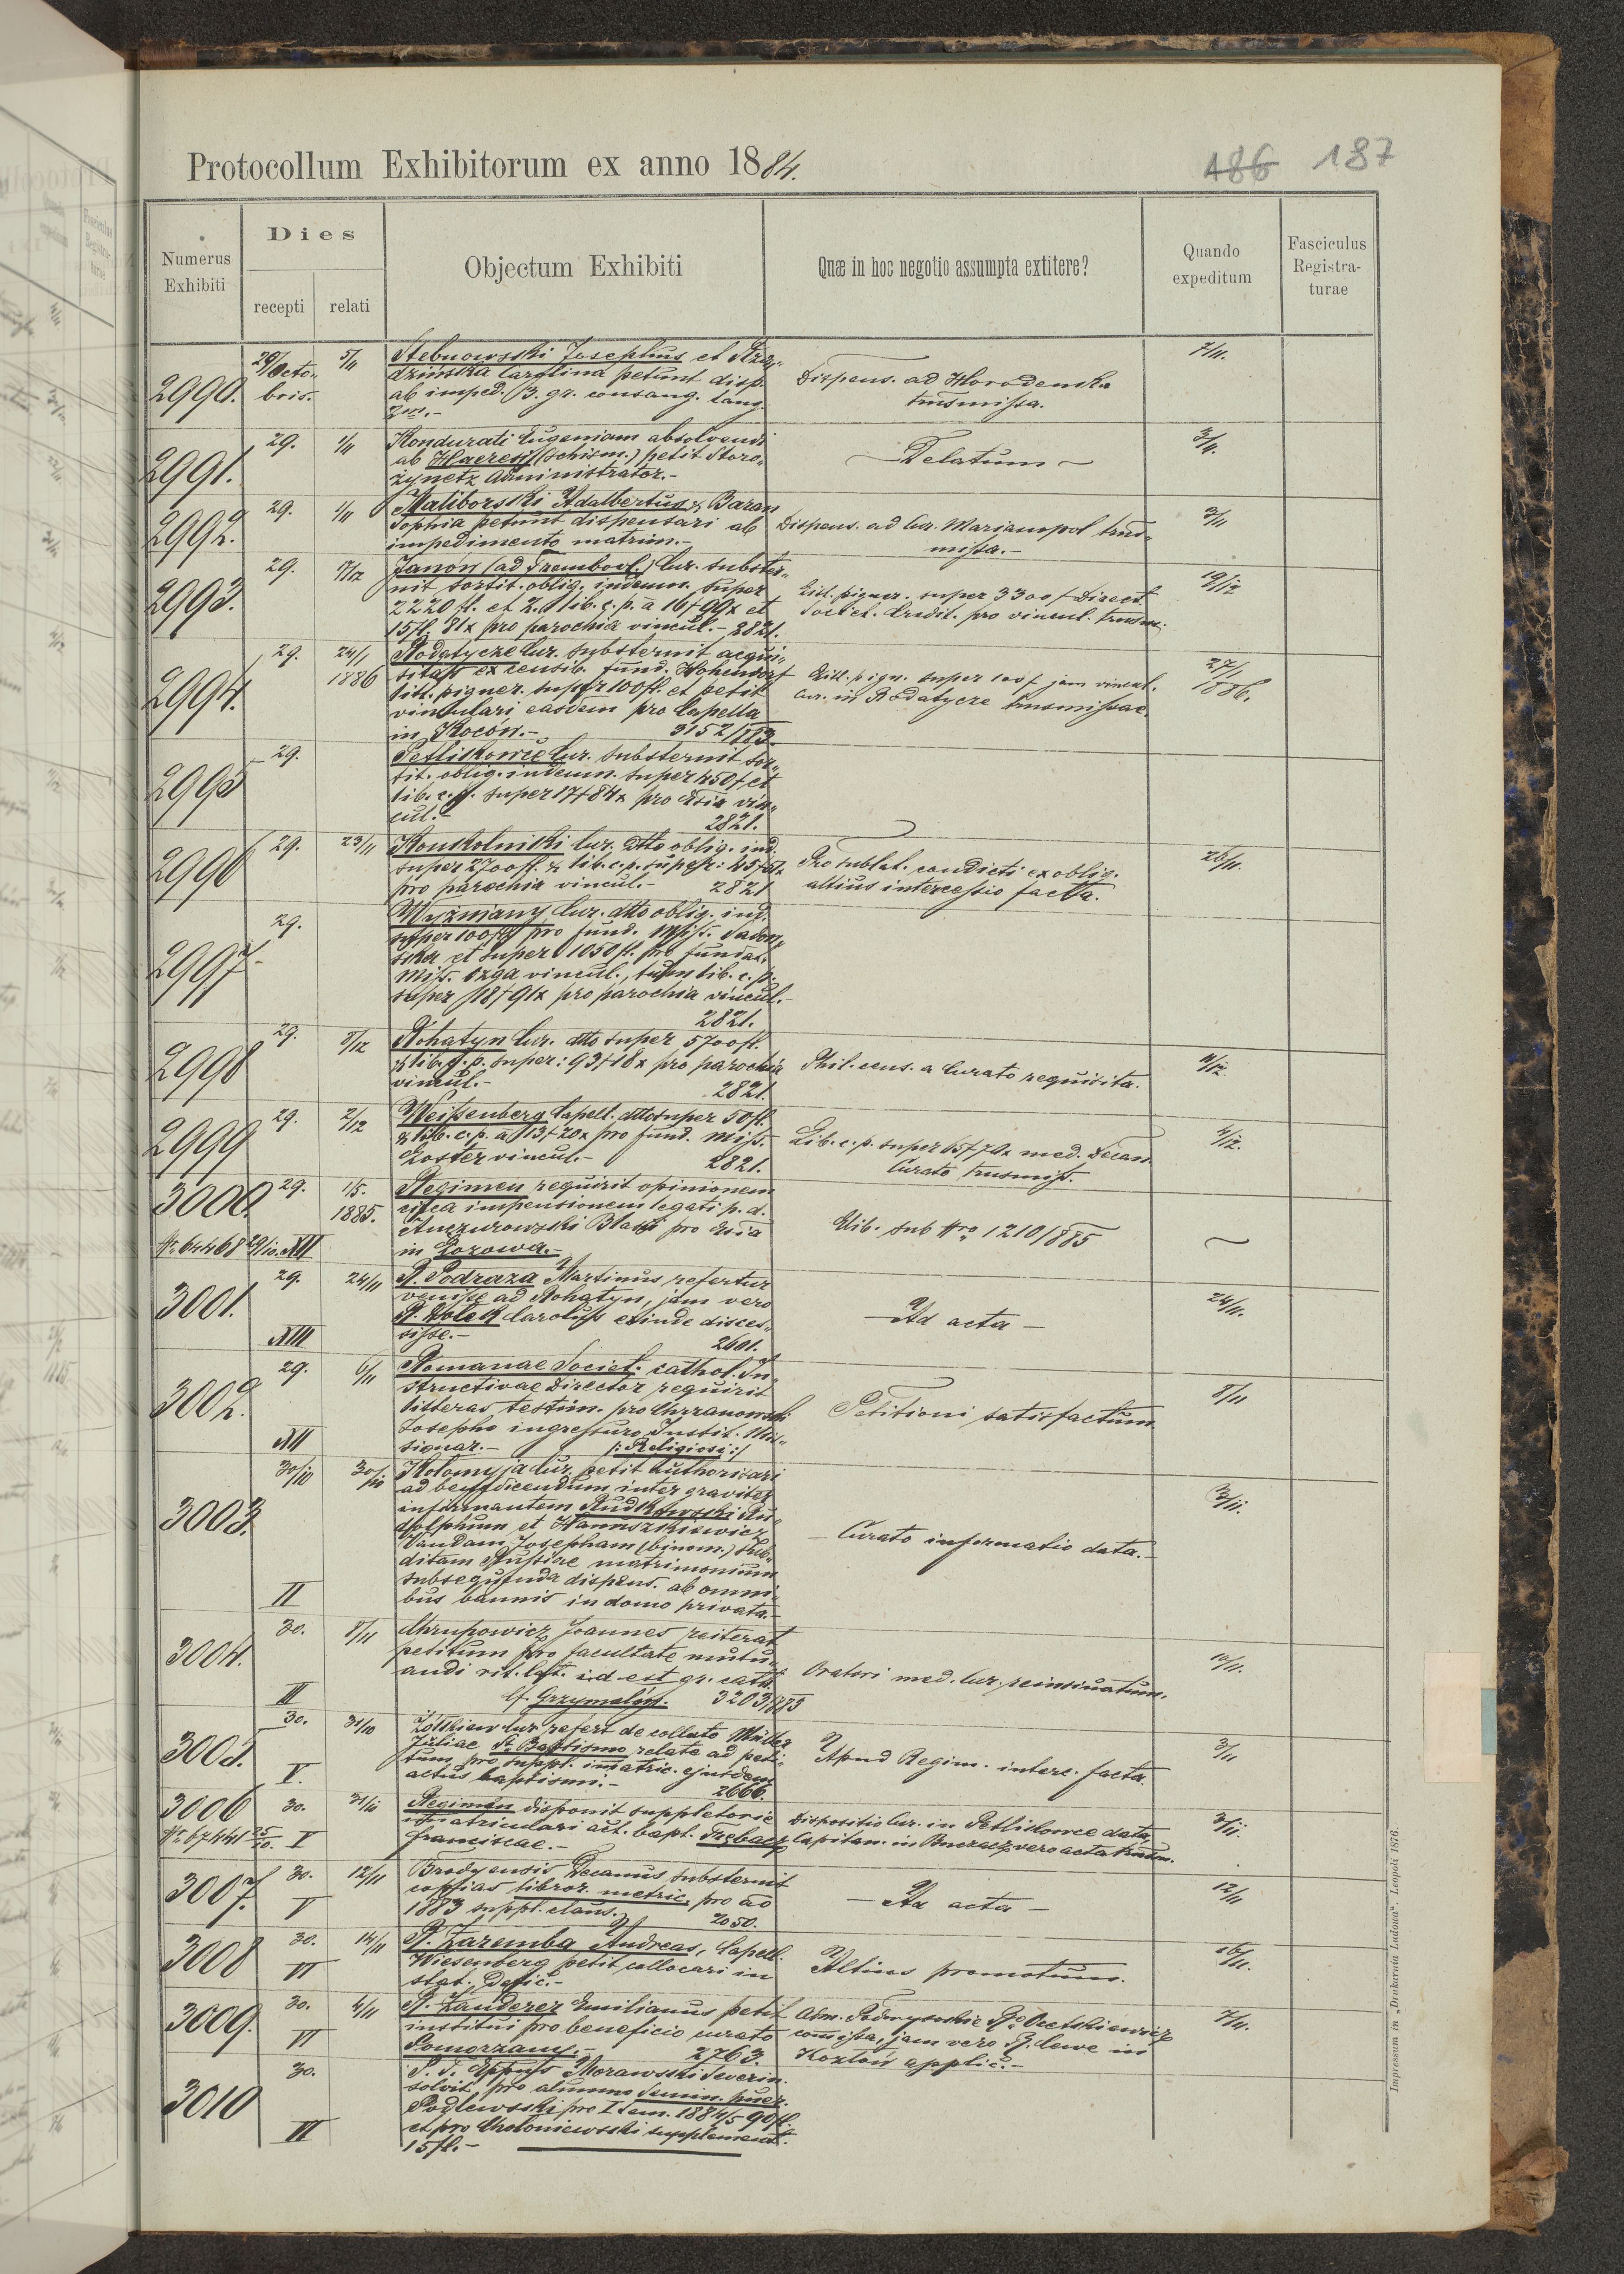 Protocollum Exhibitorum ex anno 1884.
186 187
Numerus Exhibiti
Dies
recepti
relati
Objectum Exhibiti
Quæ in hoc negotio assumpta extitere?
Quando expeditum
Fasciculus Registra-
turae
2990. 29/Octo-
bris. 5/11
Stebnowski Josephus et
dzińska Carolina petunt disp.
ab imped. 3. gr. consang. tang.
2m.-
Dispens. ad Horodenka
trnsmissa.
7/11.
2991. 29. 1/11
Kondurati Eugeniam absolvendi
ab Haeresi (schism.) petit Storo-
zynetz Administrator.-
Delatum
3/11.
2992. 29. 1/11
Maliborski Adalbertus & Baran
Sophia petunt dispensari ab
impedimento matrim.-
Dispens. ad Cur. Mariampol trns-
missa.-
3/11
2993. 29. 17/12
Janon (ad Trembowl.) Cur. subster-
nit sortit. oblig. indemn. super
2220 fl. et 2. lib. c. p. à 16 f 99 x et
15 fl. 81 x pro parochia vincul.- 2821.
Litt. pigner. super 3300 f Direct.
Societ. Credit. pro vincul. trnsm.
19/12
2994. 29. 24/1
1886
Rodatycze Cur. substernit acqui-
sitas ex censib. fund. Hohendorf
litt. pigner. super 100 fl. et petit
vinculari easdem pro Capella
in Kocón.- 3152/883.
Litt. pign. super 100 f jam vincul.
Cur. in Rodatycze trnsmissae.
27/1
1886.
2995 29.
Petlikowce Cur. substernit sor-
tit. oblig. indemn. super 450 f et
lib. c. p. super 17 f 84 x pro vin-
cul.- 2821.
2996 29. 23/11
Konkolniki Cur. dtto oblig. ind.
super 2700 fl. & lib. c. p. super: 45 f
pro parochia vincul.- 2821
Pro sublat. condicti ex oblig.
altius intercessio facta.
26/11.
2997. 29.
Wyżniany Cur. dtto oblig. ind.
super 100 fl pro fund. Miss. Sadow-
ska et super 1050 fl. pro fundat.
Miss. Ożga vincul., tum lib. c. p.
super 18 f 91 x pro parochia vincul.-
2821.
2998 29. 8/12
Rohatyn Cur. dtto super 5700 fl.
& lib. c. p. super: 93 f 18 x pro parochia
vincul.- 2821.
Phil. cens. a Curato requisita.
11/12.
2999 29. 2/12
Weissenberg Capell. dtto super 50 fl.
& lib. c. p. à 13 f 20 x pro fund. Miss.
Koster vincul.- 2821.
Lib. c. p. super 65 f 70 x med. Decan.
Curato trnsmiss.
4/12.
3000. 29. 1/5.
1885.
Nr. 64468 29/10. XII
Regimen requirit opinionem
circa impensionem legati p. d.
Anczurowski Blasii pro
in Łozowa.-
Uib. sub Nro 1210/885
3001. 29. 24/11
XIII
R. Podraza Martinus refertur
venisse ad Rohatyn, jam vero
R. Rolek Carolus exinde disces-
sisse.- 2601.
Ad acta
24/11.
3002. 29. 6/11
XII
Romanae Societ. cathol. In-
structivae Director requirit
litteras testim. pro Chrzanowski
Josepho ingressuro Instit. Mis-
sionar.- /: Religiosi :/
Petitioni satisfactum
8/11
3003. 30/10 30/10
II
Kolomyja Cur. petit authorisari
ad benedicendum inter graviter
infirmantem Rudkowski Ru-
dolphum et Hanuszkiewicz
Vandam Josepham (binom.) sub-
ditam Russiae matrimonium
subsequenda dispens. ab omni-
bus bannis in domo privata.-
Curato informatio data.-
3/11.
3004. 30. 8/11
III
Chrupowicz Joannes reiterat
petitum pro facultate mutu-
andi rit. lat. id est gr. cath.
Cf. Grzymałów. 3203/883
Oratori med. Cur. reinsinuatum.
10/11.
3005. 30. 31/10
V.
Żółkiew Cur. refert de collato Müller
Juliae St. Baptismo relate ad peti-
tum pro suppl. imatric. ejusdem
actus baptismi.- 2666.
Apud Regim. interc. facta.
3/11
3006 30. 31/10
Nr. 67441 25/10. V
Regimen disponit suppletorie
imatriculari act. bapt. Trębacz
Franciscae.-
Dispositio Cur. in Petlikowce data,
Capitan. in Buczacz vero acta trnsm.
3/11.
3007. 30. 12/11
V
Brodyensis Decanus substernit
copias libror. metric. pro ao
1883 suppl. claus. 2050.
Ad acta
12/11
3008 30. 14/11
VI
R. Zaremba Andreas, Capell.
Wiesenberg petit collocari in
stat. Defic.-
Altius promotum.
16/11.
3009. 30. 4/11
VI
R. Zauderer Emilianus petit
institui pro beneficio curato
Pomorzany.- 2763.
Adm.
comissa, jam vero R. Lewe in
Kozłów applic.-
7/11.
3010 30.
III
P. T. Morawski Severin.
solvit pro alumno Semin. puer.
Podlewski pro I Sem. 1884/5 90 fl.
et pro Choloniewski supplement.
15 fl.-
Impressum in „Drukarnia Ludowa“. Leopoli 1876.